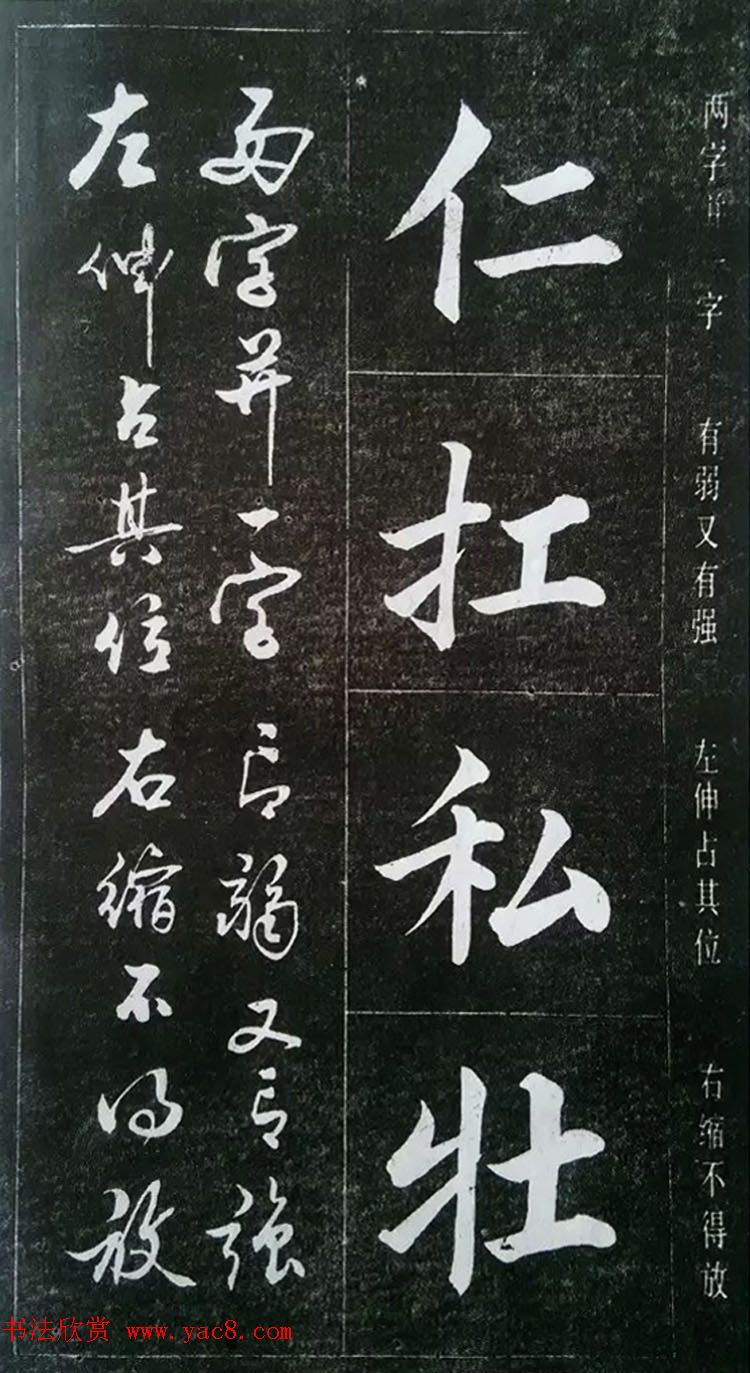 两字并一字 有弱又有强 左伸占其位 右缩不得放
仁扛私牡
两字并一字有弱又有强
左伸占其位右缩不得放
书法欣赏 www.yac8.com